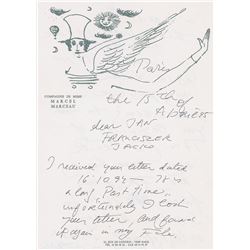 COMPAGNIE DE MIME
MARCEL
MARCEAU
Paris
the 15th of
dear JAN
FRANCISZEK
I received your letter dated
16.10.94 — It's
a long Past Time,
unfortunately I lost
your letter and found
it again in my File.